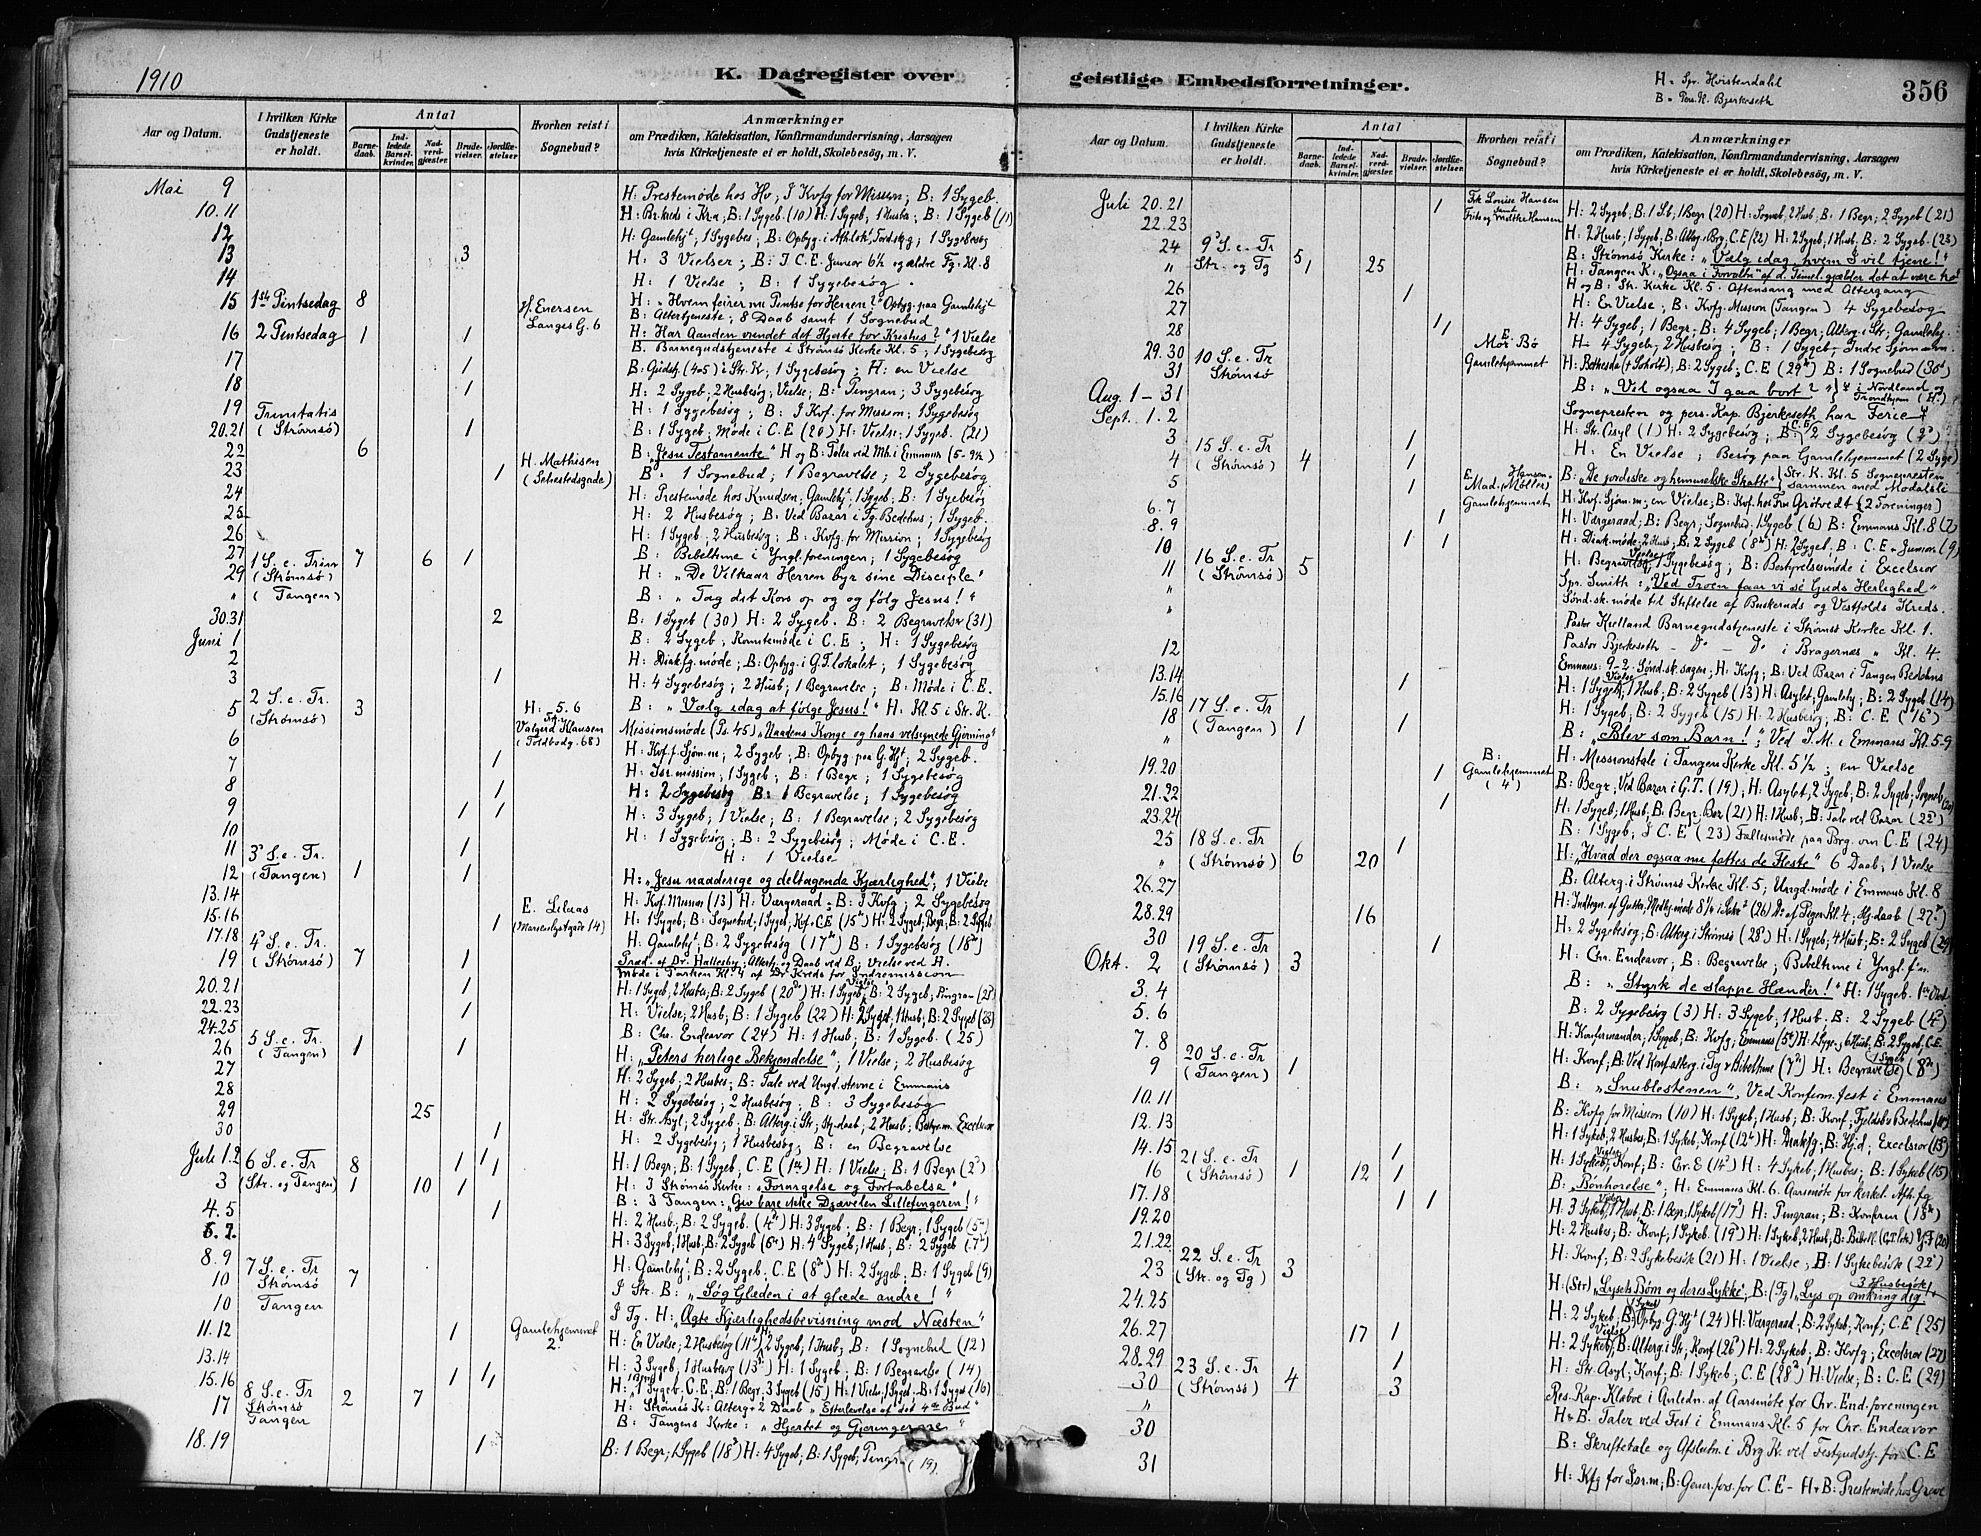 1910
K. Dagregister over
Aar og Datum.
I hvilken Kirke Gudstjeneste er holdt.
Antal
Barnedaab.
Indledede Barselkvinder.
Nadverdgjæster.
Brudevielser.
Jordfæstelser.
Hvorhen reist i Sognebud?
Anmærkninger
om Prædiken, Katekisation, Konfirmandundervisning, Aarsagen
hvis Kirketjeneste ei er holdt, Skolebesøg, m. V.
Mai 9 H: Prestemøde hos Hv; I Kvfg for Mission; B: 1 Sygeb.
10.11 B: 1 Sygeb (10) H: 1 Sygeb, 1 Husbes; B: 1 Sygeb (11)
12 H: Gamlehjt, 1 Sygebes; B: Opbyg. i 1 Sygebesøg
13 3 H: 3 Vielser; B: I C.E. Junior 6½ og ældre Fg. Kl. 8
14 H: 1 Vielse; B: 1 Sygebesøg.
15 1ste Pintsedag 8 Langes G. 6 H: „Hvem feirer nu Pintse for Herren?" Opbyg. paa Gamlehjt
B: Altertjeneste; 8 Daab samt 1 Sognebud
16 2 Pintsedag 1 1 H: Har Aanden vendet det Hjerte for Kristus?" 1 Vielse
B. Barnegudstjeneste i Strømsø Kirke Kl. 5; 1 Sygebesøg
17 1 B: Gudstj. (405) i Str. K; 1 Sygebesøg; H: en Vielse
18 1 H: 2 Sygeb; 2 Husbesøg; Vielse; B: Pingran; 3 Sygebesøg
19 Trinitatis H: 1 Sygebesøg; B: I Kvf. for Mission; 1 Sygebesøg
20.21 (Strømsø) 1 B: 1 Sygeb; Møde i C.E (20) H: Vielse; 1 Sygeb. (21)
22 6 B: „Jesu Testamente" H og B: Taler ved Mh. i Emmaus (5-9½)
23 1 H. Mathisen (Sehestedsgade) B: 1 Sognebud; 1 Begravelse; 2 Sygebesøg
24 H: Prestemøde hos Knudsen, Gamlehjt, 1 Sygeb; B: 1 Sygebesøg
25 H: 2 Husbesøg; B: Ved Bazar i Tg. Bedehus; 1 Sygeb.
26 H: 1 Sygeb; 2 Husbesøg; B: Kvfg. for Mission; 1 Sygebesøg
27 B: Bibeltime i Yngl. foreningen; 1 Sygebesøg
29 1 S. e. Trin (Strømsø) 7 6 1 H: „De Vilkaar Herren byr sine Disciple"
" (Tangen) B: „Tag det Kors op og og følg Jesus!"
30.31 2 B: 1 Sygeb (30) H: 2 Sygeb. B: 2 Begravelser (31)
Juni 1 B: 2 Sygeb, Komitemøde i C.E; H: 1 Sygebesøg
2 H: Diakfg. møde; B: Opbyg. i G.T. lokalet; 1 Sygebesøg
3 1 H: 4 Sygebesøg; 2 Husb; 1 Begravelse; B: Møde i C.E.
5 2 S. e. Tr. (Strømsø) 3 B: „Vælg idag at følge Jesus!" H. Kl. 5 i Str. K.
H: 5. 6 Valgerd Klausen (Toldbodg. 68) Missionsmøde (Ps. 45) „Naadens Konge og hans velsignede Gjerning"
6 1 H: Kvf. f. Sjøm. m; 2 Sygeb; B: Opbyg. paa G. Hjt; 2 Sygeb.
7 H: Isr. mission; 1 Sygeb; B: 1 Begr; 1 Sygebesøg
8 1 H: 2 Sygebesøg B: 1 Begravelse; 1 Sygebesøg
9 1 1 H: 3 Sygeb; 1 Vielse; B: 1 Begravelse; 2 Sygebesøg
10 H: 1 Sygebesøg; B: 2 Sygebesøg; Møde i C.E.
11 3' S. e. Tr. 1 H: 1 Vielse
12 (Tangen) 1 1 H: „Jesu naaderige og deltagende Kjærlighed"; 1 Vielse
13.14 H: Kvf. Mission (13) H: Værgeraad; B: I Kvfg; 2 Sygebesøg
15.16 1 E. Lilaas (Marienlystgade 14) H: 1 Sygeb; B: Sognebud, 1 Sygeb, Kvf. C.E (15de) H: 2 Sygeb, Begr, B: 2 Sygeb
17.18 H: Gamlehjt, B: 2 Sygebesøg (17de) B: 1 Sygebesøg (18de)
19 4' S. e. Tr. (Strømsø) 7 1 Præd. af Dr. Hallesby; Alterg. og Daab ved B; Vielse ved H.
møde i Parken Kl. 4 af Dr. Kreds for Indremission
20.21 1 H: 1 Sygeb, 2 Husbes; B: 2 Sygeb (20de) H: 1 Sygeb, Vielse B: 2 Sygeb, Pingran (21)
22.23 1 H: Vielse; 2 Husb; B: 1 Sygeb (22) H: 2 Sygeb, 1 Husb; B: 2 Sygeb (23)
24.25 B: Chr. Endeavor (24) H: 1 Husb; B: 1 Sygeb. (25)
26 5 S. e. Tr. (Tangen) 1 1 H: „Peters herlige Bekjendelse"; 1 Vielse; 2 Husbesøg
27 H: 2 Sygeb; 2 Husbes; B: Tale ved Ungd. stevne i Emmaus
28 H: 2 Sygebesøg; 2 Husbesøg; B: 3 Sygebesøg
29 25 H: Str. Asyl; 2 Sygeb; B: Alterg. i Str., Hj. daab; 2 Husb; Excelsior
30 1 H: 2 Sygebesøg, 1 Husbesøg; B: en Begravelse
Juli 1.2 6 S. e. Tr 8 1 1 1 H: 1 Begr; B: 1 Sygeb; C.E (1ste) H: 1 Vielse; B: 1 Begr (2')
3 (Str. og Tangen) 1 10 1 H: I Strømsø Kirke: „Forargelse og Fortabelse"
4.5 1 B: I Tangen: „Giv bare ikke Djævelen Lillefingeren!"
6.7. H: 2 Husb; B: 2 Sygeb. (4de) H: 3 Sygeb; B: 1 Begr; 1 Sygeb (5te)
H: 3 Sygeb, 1 Husb; B: 2 Sygeb (6te) H: 4 Sygeb; 1 Husb; B: 2 Sygeb (7de)
8.9 H: Gamlehjt; B: 2 Sygeb. C.E (8de) H: 2 Sygeb; B: 1 Sygeb (9)
10 7 S. e. Tr Strømsø 7 I Str. B: „Søg Glæden i at glæde andre!"
10 Tangen I Tg. H: „Ægte Kjærlighedsbevisning mod Næsten"
11.12 1 Gamlehjemmet 2. H: En Vielse; 2 Husbesøg (11te) 2 Sygeb; 1 Husb; B: 1 Sognebud (12)
13.14 H: 3 Sygeb, 1 Husbesøg (13de) H: 1 Sygeb; B: 1 Begravelse (14)
15.16 1 1 1 H: 1 Sygeb, C.E; B: 1 Begr, 3 Sygeb (15) H: 1 Vielse, 1 Sygeb, B: 1 Sygeb (16)
17 8 S. e. Tr Strømsø Tangen 2 7 H: Strømsø K: Alterg + 2 Daab „Efterlevelse af det 4de Bud"
B: Tangens Kirke: „Hjertet og Gjerningerne"
18.19 1 B: 1 Begr; 1 Sygeb (18de) H: 4 Sygeb; B: 1 Sygeb; Pingr (19).
geistlige Embedsforretninger.
H = Spr. Hvistendahl
B = Pers. K. Bjerkeseth
356
Aar og Datum.
I hvilken Kirke Gudstjeneste er holdt.
Antal
Barnedaab.
Indledede Barselkvinder.
Nadverdgjæster.
Brudevielser.
Jordfæstelser.
Hvorhen reist i Sognebud?
Anmærkninger
om Prædiken, Katekisation, Konfirmandundervisning, Aarsagen
hvis Kirketjeneste ei er holdt, Skolebesøg, m. V.
Juli 20.21 1 Frk Louise Hansen samt Moltke Hansen H: 2 Sygeb; B: 1 Sb, 1 Begr (20) H: Sogneb, 2 Husb; B: 1 Begr; 2 Sygeb (21)
22.23 H: 2 Husb, 1 Sygeb; B: C.E (22) H: 2 Sygeb, 1 Husb; B: 2 Sygeb. (23)
24 9' S. e. Tr 5 B: Strømsø Kirke: „Vælg idag, hvem I vil tjene!"
" Str. og Tg 1 25 H: Tangen K: „Ogsaa i af d. gjælder det at være tro
26 H og B: Str. Kirke Kl. 5. Aftensang med Altergang
27 1 H: En Vielse; B: Kvfg. Mission (Tangen) 4 Sygebesøg
28 1 1 H: 4 Sygeb; 1 Begr; B: 4 Sygeb; 1 Begr; Alterg. i Str; Gamlehj.
29.30 10 S. e. Tr E. Mor Bø H- 4 Sygeb; 2 Husbesøg; B: 1 Sygeb; Indre Sjømandsm.
31 Strømsø Gamlehjemmet H: Bethesda B: 2 Sygeb; C.E (29de) B: 1 Sognebud (30d)
B: „Vil ogsaa I gaa bort?" i Nordland og Trondhjem (H.)
Aug. 1 - 31 Sognepresten og pers. Kap. Bjerkeseth har Ferie
Sept. 1.2 H: Str. Asyl (1) H: 2 Sygebesøg; B: C.E 2 Sygebesøg (2')
3 1 H: En Vielse; Besøg paa Gamlehjemmet (2 Syge)
4 15 S. e. Tr (Strømsø) 4 1 B: „De jordiske og himmelske Skatte" Str. K. Kl. 5 Sognepresten sammen med Modalsli
5 1 E. Hansen Mad. Møller; Gamlehjemmet H: Kvf. Sjøm. m; en Vielse; B: Kvf. hos Fru Grøtvedt (2 Foreninger)
6.7 1 H: Værgeraad; B: Begr; Sognebud; 1 Sygeb (6) B: Emmaus Kl. 8 (7)
8.9 1 1 H: Diak. møde; 2 Husb; B: 2 Sygeb (8de) H: 2 Sygeb; B: C.E. Junior (9)
10 16 S. e. Tr H: Begravelse, Vielse, 1 Sygebesøg; B: Bestyrelsesmøde i Excelsior
11 (Strømsø) 5 Spr. Smith: „Ved Troen faar vi se Guds Herlighed"
" Sønd. sk. møde til Stiftelse af Buskeruds og Vestfolds Kreds.
" Pastor Kielland Barnegudstjeneste i Strømsø Kirke Kl. 1.
12 Pastor Bjerkeseth - D° - D° i Bragernes " Kl. 4.
13.14 1 Emmaus: 9-2. Sønd. sk. sagen; H: Kvfg; B: Ved Bazar i Tangen Bedehus
15.16 H: 1 Sygeb, Vielse 1 Husb; B: 2 Sygeb (13) H: Asylet, Gamlehj; B: 2 Sygeb (14)
18 17 S. e. Tr (Tangen) 1 1 H: 1 Sygeb; B: 2 Sygeb (15) H: 2 Husbesøg; B: C.E (16')
" B: „Bliv som Barn!"; Ved I.M. i Emmaus Kl. 5-9
19.20 1 B: Gamlehjemmet (4) H: Missionstale i Tangen Kirke Kl. 5½; en Vielse
21.22 1 B: Begr. Ved Bazar i G.T. (19); H: Asylet, 2 Sygeb; B: 2 Sygeb, Sogneb (20)
23.24 H: 1 Sygeb; 1 Husb; B: Begr, Baz (21) H: 1 Husb; B: Tale ved Bazar (22')
25 18 S. e. Tr (Strømsø) 6 20 1 B: 1 Sygeb, I C.E (23) Fællesmøde paa Brg. om C.E (24)
" H: „Hvad der ogsaa nu fattes de Fleste" 6 Daab; 1 Vielse
26.27 B: Alterg. i Strømsø Kirke Kl. 5; Ungd. møde i Emmaus Kl. 8
28.29 16 H: Indtegn. af Gutter, (26) D° af Piger Kl. 4. Hj. daab (27')
30 1 H: 2 Sygebesøg; B: Alterg. i Strømsø (28d) H: 1 Sygeb, 4 Husb; B: 2 Sygeb (29)
Okt. 2 19 S. e. Tr (Strømsø) 3 H: Chr. Endeavor; B: Begravelse; Bibeltime i Yngl. f'n.
3.4 B: „Styrk de slappe Hænder!" H: 1 Sygeb.
5.6 B: 2 Sygebesøg (3) H: 3 Sygeb; 1 Husb. B: 2 Sygeb (4')
7.8 H: Konfirmander, 1 Sygeb; B: Kvfg; Emmaus (5te) H: 1 Sygeb, 6 Husb, B: 2 Sygeb, C.E.
9 20 S. e. Tr (Tangen) 1 H: Konf; B: Ved Konf. alterg. i Tg + Bibeltime (7de) H: Begravelse 1 Sygeb (8de)
10.11 B: „Snublestenen", Ved Konfirm. fest i Emmaus
12.13 B: Kvfg for Mission (10) H: 1 Sygeb, 1 Husb; B: Konf, Bedehus
14.15 1 H: 1 Sykeb, 2 Husbes; B: 1 Sykeb, Konf (12te) H: Diakfg, B: Hjd, Excelsior (13')
16 21 S. e. Tr (Strømsø) 1 12 1 H: 1 Sykeb, Vielse, Konf; B: Chr. E (14') H: 4 Sykeb, 1 Husbes; B: 1 Sykeb (15)
17.18 1 1 B: „Bønhørelse"; H: Emmaus Kl. 6. Aarsmøte for kirkel. Afh. fg
19.20 H: 3 Sykeb, Vielse 1 Husb, B: 1 Begr, 1 Sykeb (17') H: Pingran; B: Konfirm (18de)
21.22 H: 2 Husbes; B: Konf, 1 Sykeb. (19') H: 1 Sykeb, 2 Husb; B: Bibell (G.T. lok) Y.F (20)
23 22 S. e. Tr (Str. og Tg) 3 H: Konf; B: 2 Sykebesøk (21) H: 1 Vielse; B: 1 Sykebesøk (22')
24.25 H: (Str) „Lysets Børn og deres Lykke", B: (Tg) „Lys op omkring dig!" 3 Husbesøk
26.27 17 1 H: 2 Sykeb; 1 Sykeb B: Opbyg. G. Hjt (24) H: Værgeraad, B: 2 Sykeb, Konf, C.E (25)
28.29 1 H: 2 Sykeb, Vielse B: Alterg. i Str, Konf (26d) H: 2 Sykeb; B: Kvfg; Excelsior (27)
30 23 S. e. Tr (Strømsø) 4 3 H: Str. Asyl, Konf; B: 1 Sykeb; C.E (28') H: Vielse; B: C.E (29)
" Res. Kap. Kløboe i Anledn. af Aarsmøte for Chr. End. foreningen
30 H + B. Taler ved Fest i Emmaus Kl. 5 for Chr. Endeavor
B: Skriftetale og Afslutn. i Brg K. ved Festgudstj. for C.E
31 H: Kfg for Isr. m; B: Gener. fors. for C.E - H + B: Prestemøde hos Greve